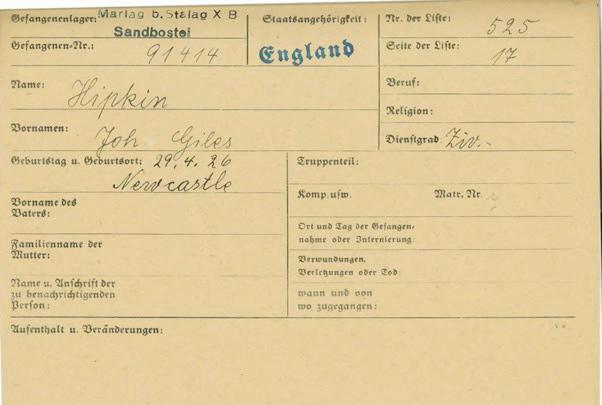 Gefangenenlager: Marlag b. Stalag X B
Sandbostel
Staatsangehörigkeit:
England
Nr. der Liste: 525
Gefangenen-Nr.: 91414
Seite der Liste: 17
Name: Hipkin
Beruf:
Religion:
Vornamen: Joh Giles
Dienstgrad: Ziv.-
Geburtstag u. Geburtsort: 29.4.26
Newcastle
Truppenteil:
Vorname des
Vaters:
Komp. usw.
Matr. Nr.
Ort und Tag der Gefangen-
nahme oder Internierung:
Familienname der
Mutter:
Verwundungen,
Verletzungen oder Tod:
Name u. Anschrift der
zu benachrichtigenden
Person:
wann und von
wo zugegangen:
Aufenthalt u. Veränderungen: